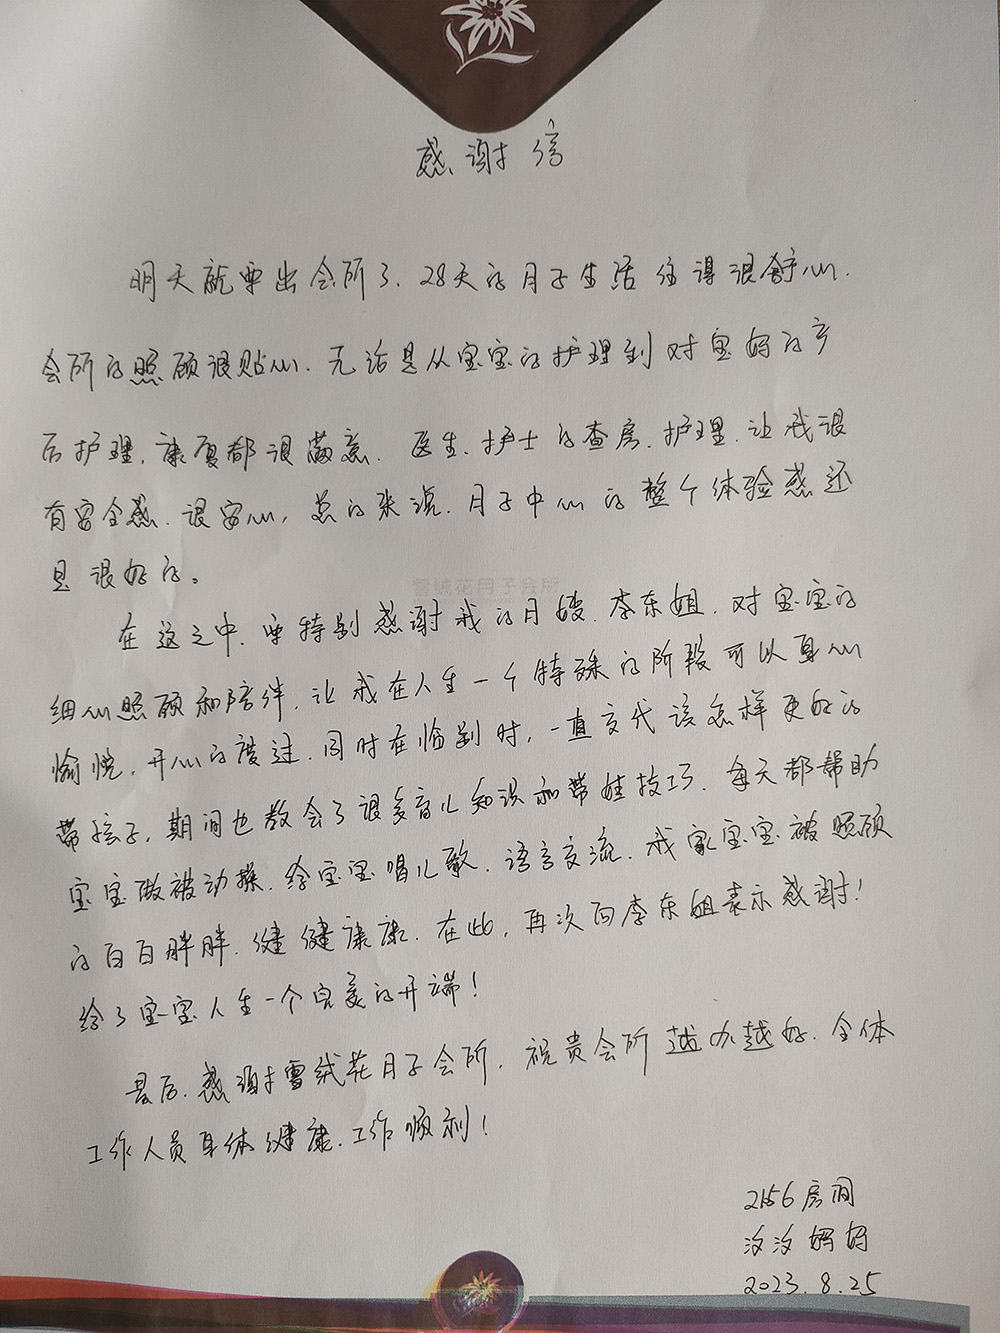 感谢信
明天就要出会所了、28天的月子生活住得很舒心.
会所的照顾很贴心.无论是从宝宝的护理到对宝妈的产
后护理,康复都很满意. 医生、护士的查房、护理,让我很
有安全感、很安心,总的来说.月子中心的整个体验感还
是很好的。
雪绒花月子会所
在这之中、要特别感谢我的月嫂、李东姐.对宝宝的
细心照顾和陪伴,让我在人生一个特殊的阶段可以身心
愉悦,开心的度过.同时在临别时,一直交代该怎样更好的
带孩子,期间也教会了很多育儿知识和带娃技巧、每天都帮助
宝宝做被动操、给宝宝唱儿歌、语言交流、我家宝宝被照顾
的白白胖胖、健健康康.在此,再次向李东姐表示感谢!
给了宝宝人生一个完美的开端!
最后、感谢雪绒花月子会所,祝贵会所越办越好、全体
工作人员身体健康、工作顺利!
2156房间
汐汐妈妈
2023.8.25